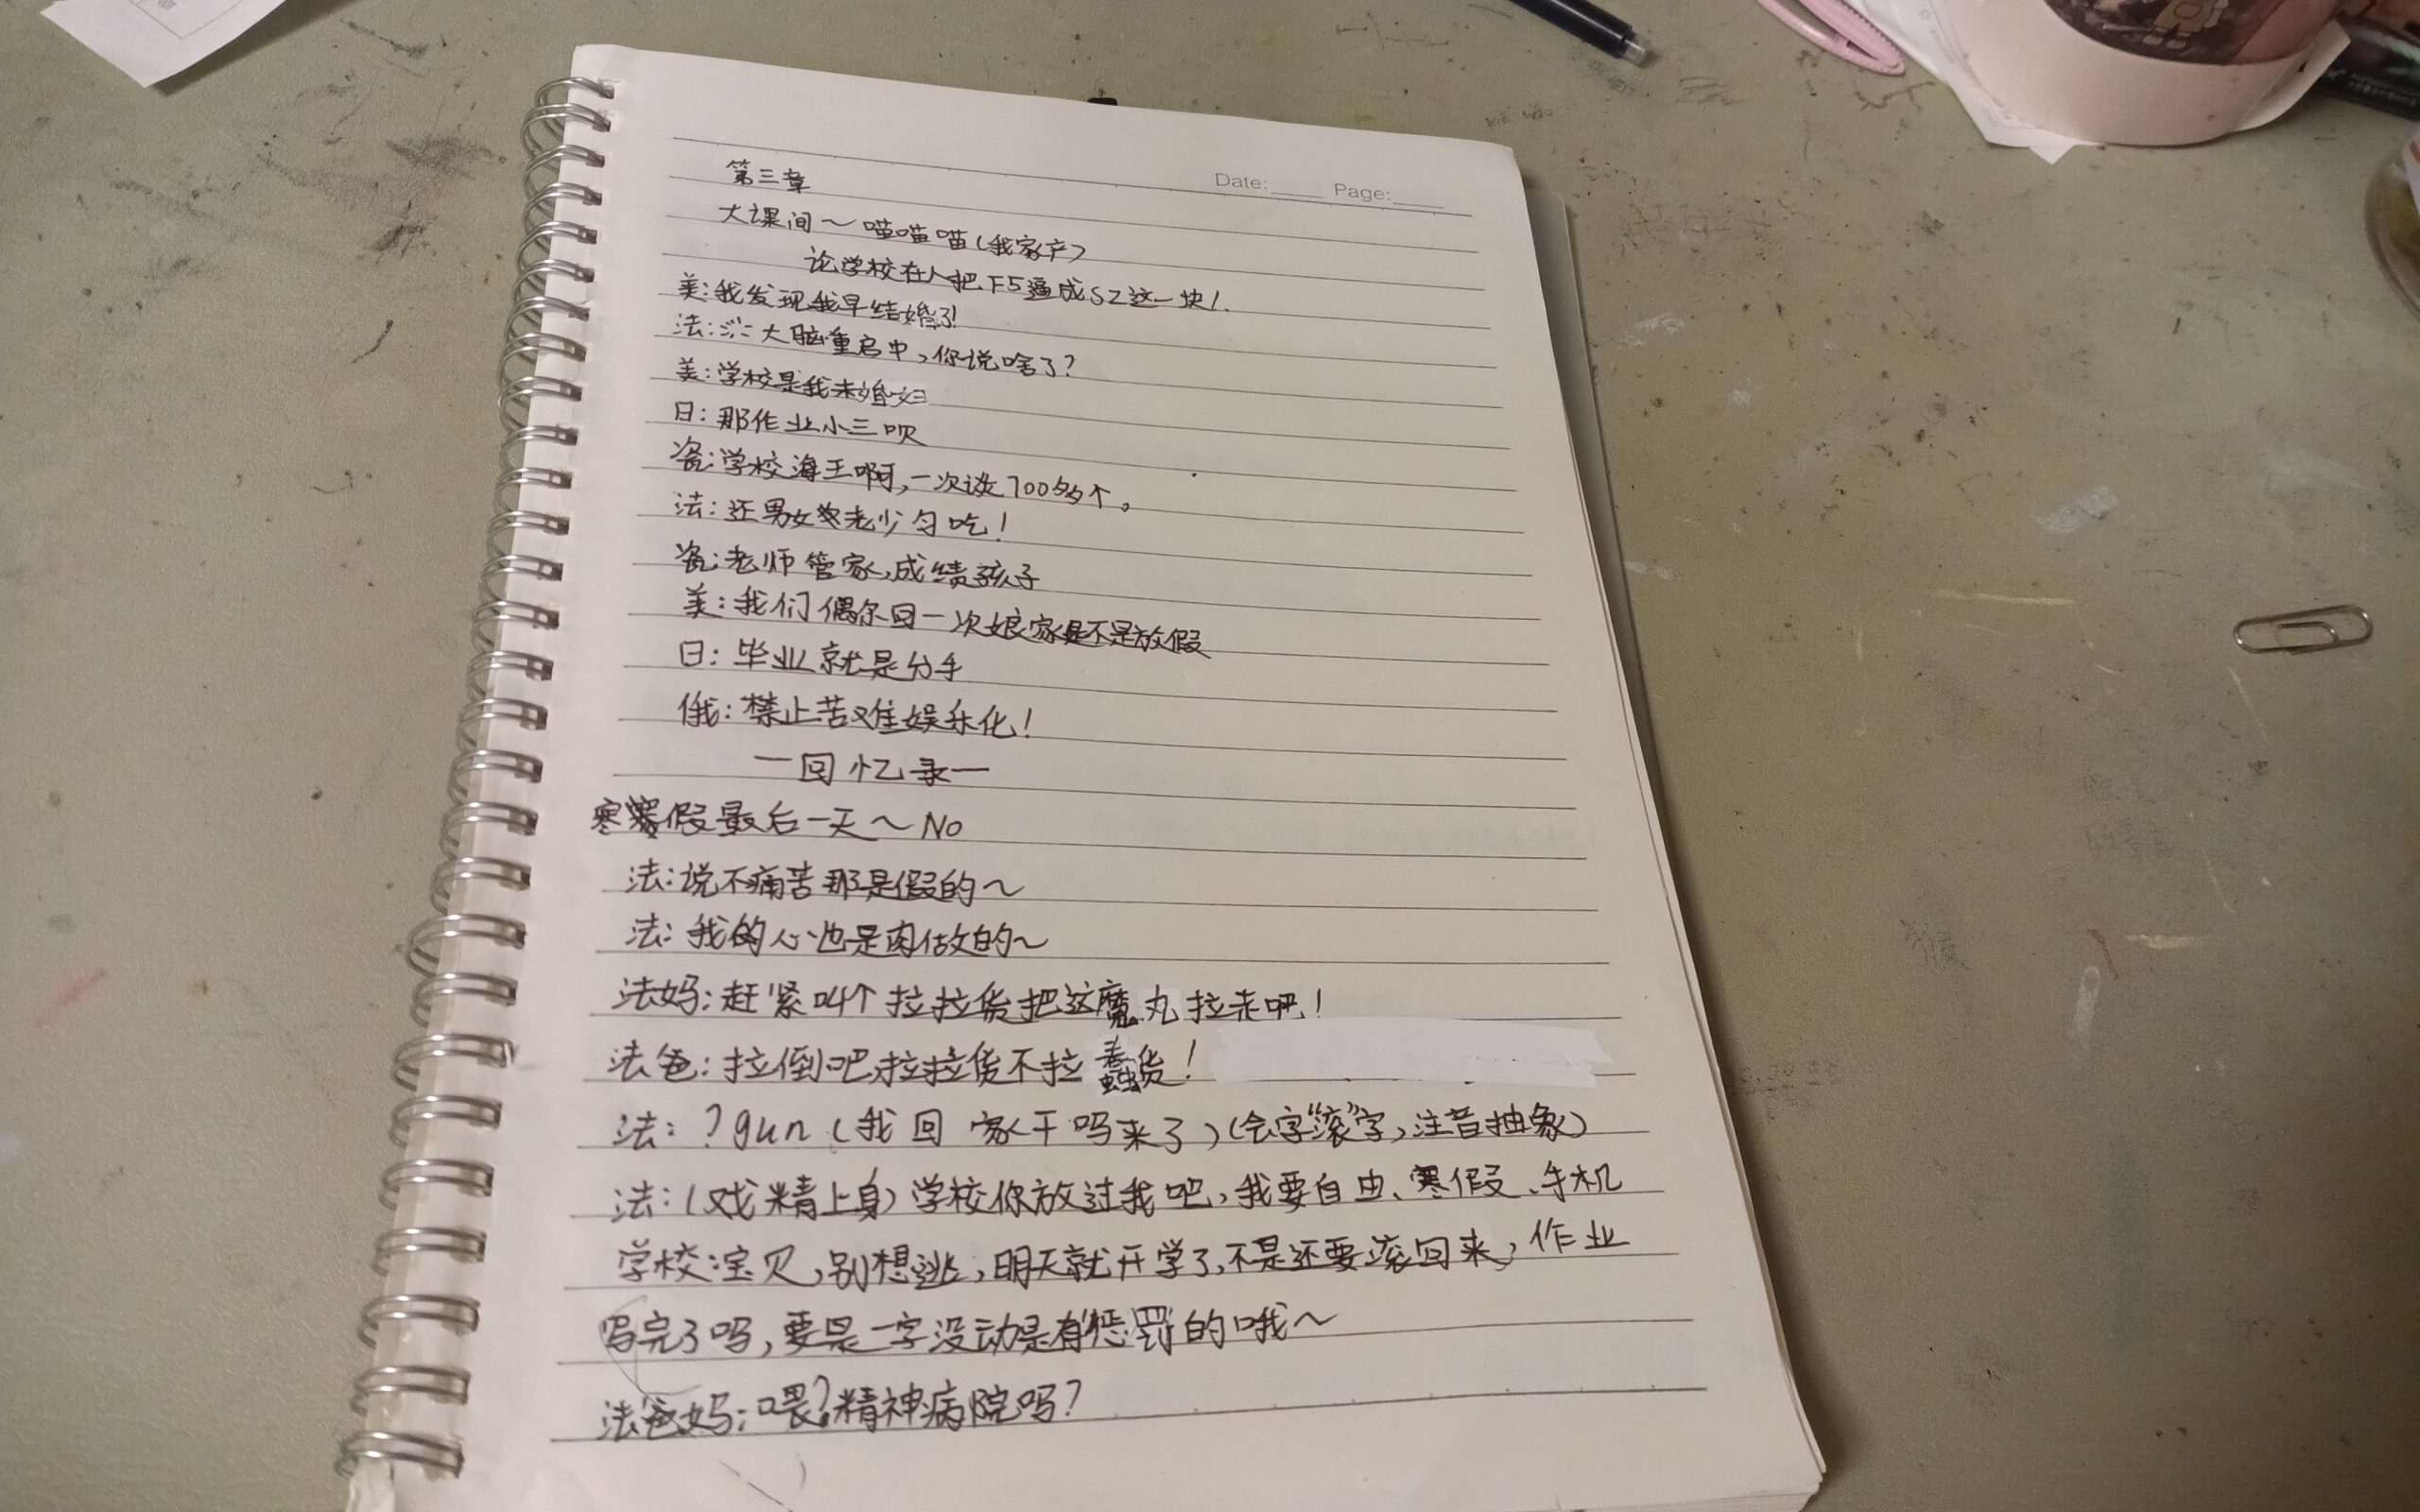 第三章
Date:____ Page:____
大课间～喵喵喵(我家产)
论学校在人把F5逼成SZ这一块！
美:我发现我早结婚了!
法:大脑重启中,你说啥了?
美:学校是我未婚妇
日:那作业小三呗
瓷:学校海王啊,一次谈700多个。
法:还男女老少匀吃!
瓷:老师管家,成绩孩子
美:我们偶尔回一次娘家是不是放假
日:毕业就是分手
俄:禁止苦难娱乐化!
—回忆录—
寒假最后一天～No
法:说不痛苦那是假的～
法:我的心也是肉做的～
法妈:赶紧叫个拉拉货把这魔丸拉走吧!
法爸:拉倒吧,拉拉货不拉蠢货!
法:?gun(我回家干吗来了)(会字"滚"字,注音抽象)
法:(戏精上身)学校你放过我吧,我要自由、寒假、手机
学校:宝贝,别想逃,明天就开学了,不是还要滚回来,作业
写完了吗,要是一字没动是有惩罚的哦～
法爸妈:喂?精神病院吗?